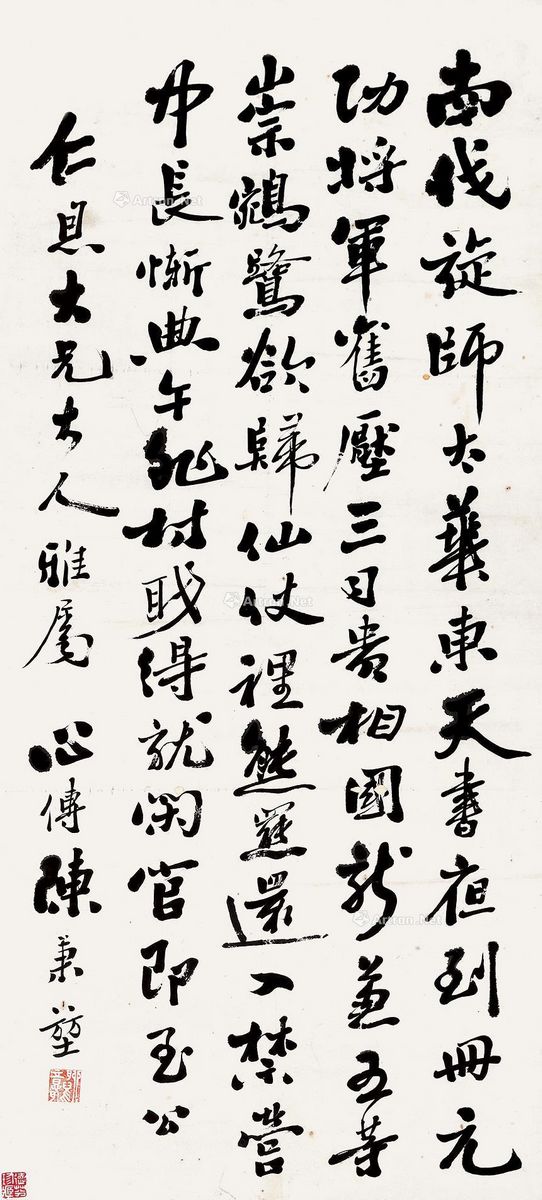 南伐旋師太華東天書夜到冊元
功將軍舊壓三司貴相國新兼五等
崇鵷鷺欲歸仙仗裡熊羆還入禁營
中長慚典午非材職得就閑官即至公
仁大兄大人雅屬 心傳陳
Artron.Net
Artron.Net
Artron.Net